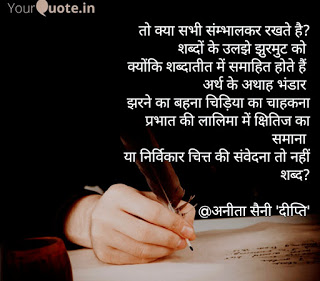 YourQuote.in
तो क्या सभी संम्भालकर रखते है?
शब्दों के उलझे झुरमुट को
क्योंकि शब्दातीत में समाहित होते हैं
अर्थ के अथाह भंडार
झरने का बहना चिड़िया का चाहकना
प्रभात की लालिमा में क्षितिज का
समाना
या निर्विकार चित्त की संवेदना तो नहीं
शब्द?
@अनीता सैनी 'दीप्ति'